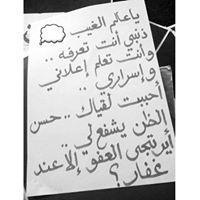 ياعالم الغيب
ذنبي أنت تعرفه ..
وأنت تعلم إعلاني
وإسراري ..
أحببت لقياك .. حسن
الظن يشفع لي
أيرتجى العفو إلا عند
غفار ؟